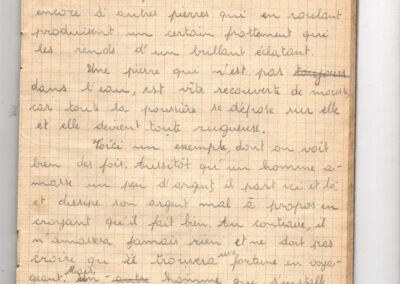 encore à autres pierres qui en roulant
produisent un certain frottement qui
les rends d'un brillant éclatant.
Une pierre qui n'est pas toujours
dans l'eau, est vite recouverte de mousse,
car toute la poussière se dépose sur elle
et elle devient toute rugueuse.
Voici un exemple dont on voit
bien des fois. Aussitôt qu'un homme a-
masse un peu d'argent, il part ici et là
et dissipe son argent mal à propos en
croyant qu'il fait bien. Au contraire, il
n'amassera jamais rien et ne doit pas
croire qu'il trouvera une fortune en voya-
geant. Mais un autre homme qui s'installe